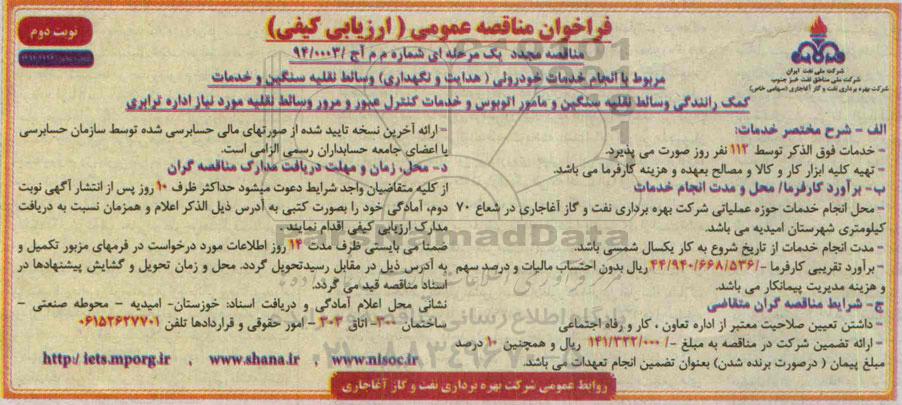 فراخوان مناقصه عمومی ( ارزیابی کیفی)
نوبت دوم
مناقصه مجدد یک مرحله ای شماره م م آج /۹۴/۰۰۰۳
مربوط با انجام خدمات خودروئی ( هدایت و نگهداری) وسائط نقلیه سنگین و خدمات
کمک رانندگی وسائط نقلیه سنگین و مامور اتوبوس و خدمات کنترل عبور و مرور وسائط نقلیه مورد نیاز اداره ترابری
شرکت ملی نفت ایران
شرکت ملی مناطق نفت خیز جنوب
شرکت بهره برداری نفت و گاز آغاجاری (سهامی خاص)
الف - شرح مختصر خدمات:
- خدمات فوق الذکر توسط ۱۱۲ نفر روز صورت می پذیرد.
- تهیه کلیه ابزار کار و کالا و مصالح بعهده و هزینه کارفرما می باشد.
ب- برآورد کارفرما/ محل و مدت انجام خدمات
- محل انجام خدمات حوزه عملیاتی شرکت بهره برداری نفت و گاز آغاجاری در شعاع ۷۰
کیلومتری شهرستان امیدیه می باشد.
- مدت انجام خدمات از تاریخ شروع به کار یکسال شمسی باشد.
- برآورد تقریبی کارفرما -/۴۴/۹۴۰/۶۶۸/۵۳۶ ریال بدون احتساب مالیات و درصد سهم
و هزینه مدیریت پیمانکار می باشد.
ج- شرایط مناقصه گران متقاضی
- داشتن تعیین صلاحیت معتبر از اداره تعاون ، کار و رفاه اجتماعی
- ارائه تضمین شرکت در مناقصه به مبلغ -/۱۴۱/۳۲۲/۰۰۰ ریال و همچنین ۱۰ درصد
مبلغ پیمان ( درصورت برنده شدن) بعنوان تضمین انجام تعهدات می باشد.
- ارائه آخرین نسخه تایید شده از صورتهای مالی حسابرسی شده توسط سازمان حسابرسی
یا اعضای جامعه حسابداران رسمی الزامی است.
د- محل، زمان و مهلت دریافت مدارک مناقصه گران
از کلیه متقاضیان واجد شرایط دعوت میشود حداکثر ظرف ۱۰ روز پس از انتشار آگهی نوبت
دوم، آمادگی خود را بصورت کتبی به آدرس ذیل الذکر اعلام و همزمان نسبت به دریافت
مدارک ارزیابی کیفی اقدام نمایند.
ضمنا می بایستی ظرف مدت ۱۴ روز اطلاعات مورد درخواست در فرمهای مزبور تکمیل و
به آدرس ذیل در مقابل رسیدتحویل گردد. محل و زمان تحویل و گشایش پیشنهادها در
اسناد مناقصه قید می گردد.
نشانی محل اعلام آمادگی و دریافت اسناد: خوزستان- امیدیه - محوطه صنعتی -
ساختمان ۳۰۰- اتاق ۳۰۳ - امور حقوقی و قراردادها تلفن ۰۶۱۵۲۶۲۷۷۰۱
http:/ iets.mporg.ir , www.shana.ir , www.nisoc.ir
روابط عمومی شرکت بهره برداری نفت و گاز آغاجاری